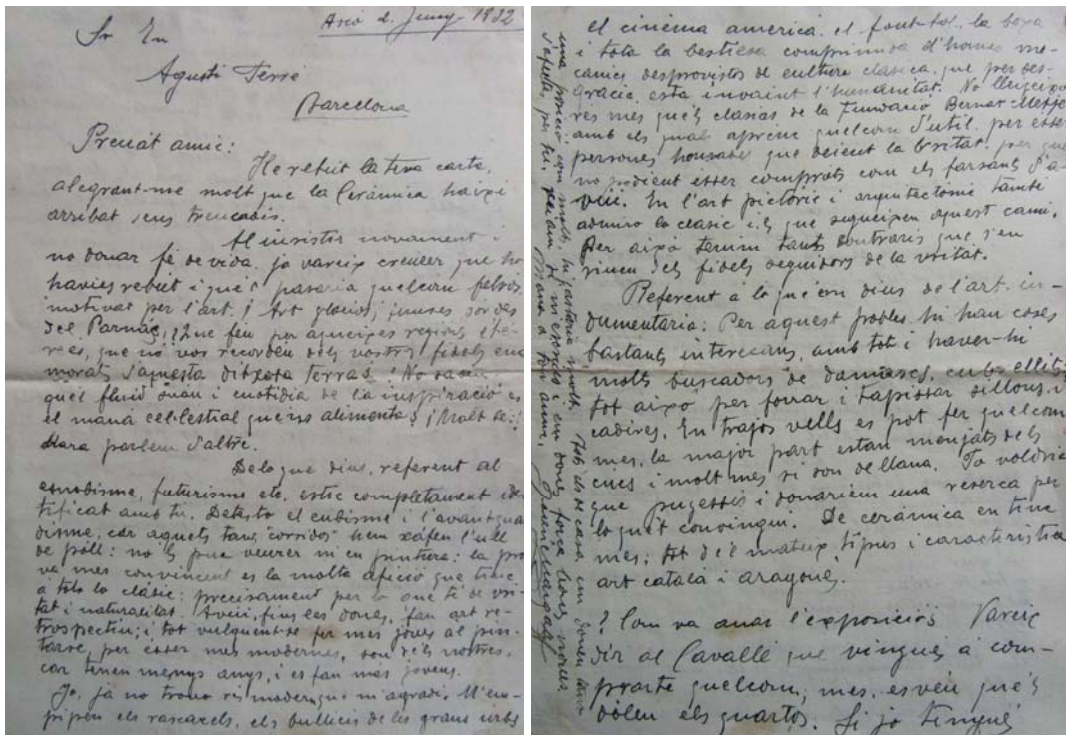 Ascó 2. Juny- 1932
Sr En
Agustí Ferré
Barcelona
Preuat amic:
He rebut la teva carta,
alegrant-me molt que la Ceràmica haixi
arribat sens trencadis.
Al insistir novament i
no donar fe de vida, ja vareix creuer que ho
havies rebut i que't pasaria quelcom
motivat per l'art. ¡Art gloriós; junuses sordes
del Parnàs, ¿Que feu per aqueixes regions eté-
rees, que no vos recordeu dels vostres fidels ena
morats d'aquesta ditxosa terra? ¿No sería
quel fluid suau i
el manà cel·lestial que'us alimenta? ¡Malt se!
Mara parlem d'altre.
Delo que dius, referent al
esnobisme, futurisme etc, estic completament iden
tificat amb tu. Detesto el cubisme i l'avantgua
disme, car aquets tans "corridos" hem xafen l'ull
de poll: no'ls puc veurer ni en pintura: la pro
va mes convincent es la molta afició que tinc
a tots lo clàsic: precisament per lo que té de veri-
tat i naturalitat. Avui, fins les dones, fan art re-
trospectiu; i tot vulguent-se fer mes joves al pin-
tarse, per esser mes modernes, son dels nostres,
car tenen menys anys, i es fan mes jovens.
Jo, ja no trovo res modern que m'agradi. M'em-
pipen els rascacels, els bullicis de les grans urbs
el cinema americà, el foot-bol, la boxa
i tota la bestiesa comprimida d'homes me-
cànics desprovistos de cultura clàsica, que per des-
gràcia, està invaint l'humanitat. No llegeixo
res mes que'ls clàsics de la Fundació Bernat Metje
amb els quals aprenc quelcom d'util, per esser
persones honrades que deient la veritat, per que
no podient esser comprats com els farsants d'a-
vui. En l'art pictòric i arquitectònic també
admiro lo clàsic i els que segueixen aquest camí.
Per això tenim tants contraris que s'en
riuen dels fidels seguidors de la veritat.
Referent a lo que'm dius de l'art in-
dumentaria: Per aquest pobles hi han coses
bastants interesans, amb tot i haver-hi
molts buscadors de damascs, cubrellits,
tot això per forrar i tapissar sillons i
cadires. En trajos vells es pot fer quelcom
mes, la major part estan menjats dels
cucs i molt mes si son de llana. Jo voldria
que pugessis i donariem una reserca per
lo que't convingui. De ceràmica en tinc
mes; tot d'el mateix tipus i característica
art català i aragonés.
? Com va anar l'exposició? Vareix
dir al Cavallé que vingués a com-
prarte quelcom; mes, es veu que'ls
dòlen els quartos. Si jo tingués
una posició com molts, hi gastaria molt. Tots els de casa em donen
d'aquesta, per tu,
Mana a ton amic,